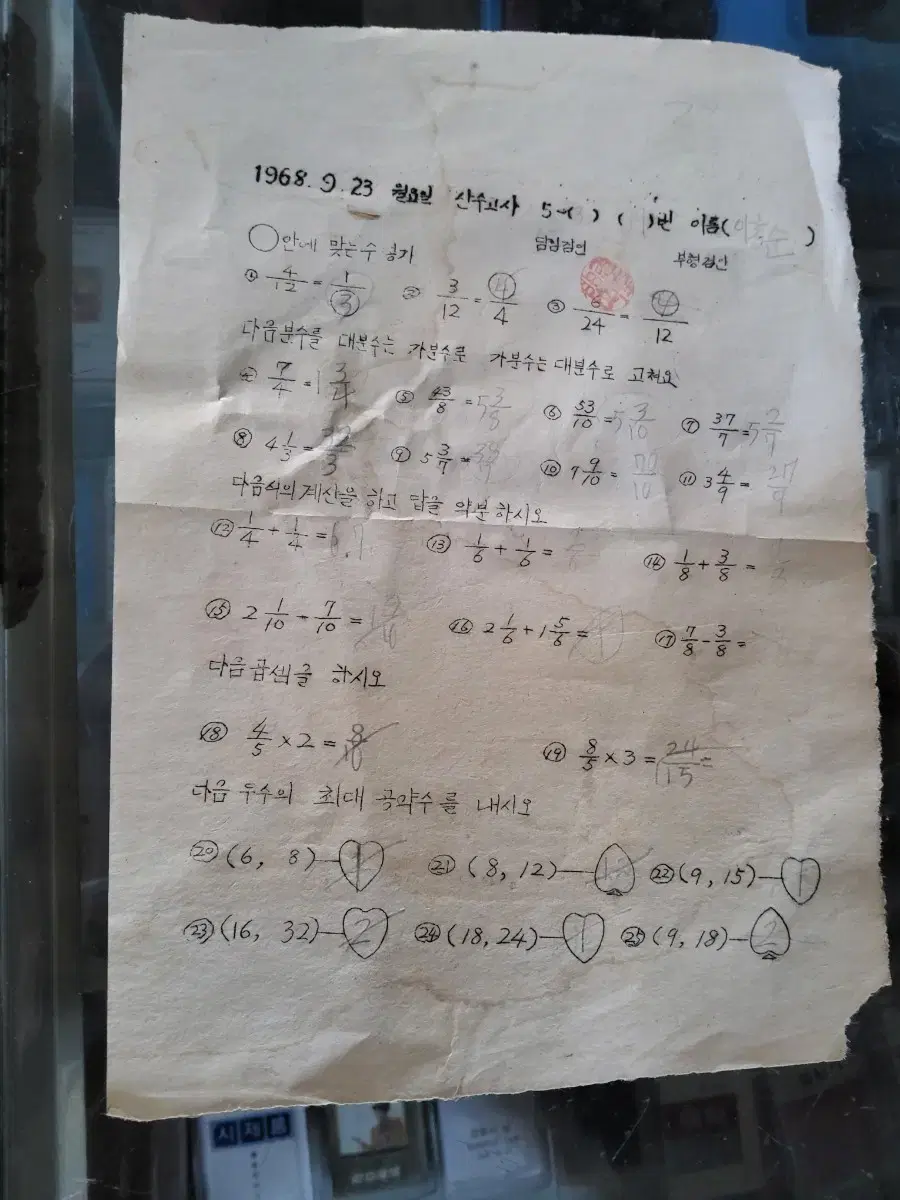 1968. 9. 23 월요일 산수고사 5-( ) ( )번 이름( )
담임검인 부형검인
○안에 맞는수 넣기
① 4/12 = 1/③ ② 3/12 = ④/4 ③ 6/24 = ④/12
다음분수를 대분수는 가분수로 가분수는 대분수로 고쳐요
④ 7/4 = 1 3/4 ⑤ 43/8 = 5 3/8 ⑥ 53/10 = 5 3/10 ⑦ 37/7 = 5 2/7
⑧ 4 1/3 = ⑨ 5 3/7 = ⑩ 7 9/10 = ⑪ 3 4/9 =
다음식의 계산을 하고 답을 약분 하시오
⑫ 1/4 + 1/4 = ⑬ 1/6 + 1/6 = ⑭ 1/8 + 3/8 =
⑮ 2 1/10 - 7/10 = ⑯ 2 1/6 + 1 5/6 = ⑰ 7/8 - 3/8 =
다음 곱셈을 하시오
⑱ 4/5 × 2 = 8/10 ⑲ 8/5 × 3 = 24/15 =
다음 두수의 최대 공약수를 내시오
⑳ (6, 8)─1 ㉑ (8, 12)─ ㉒ (9, 15)─1
㉓ (16, 32)─2 ㉔ (18, 24)─1 ㉕ (9, 18)─2
시계를